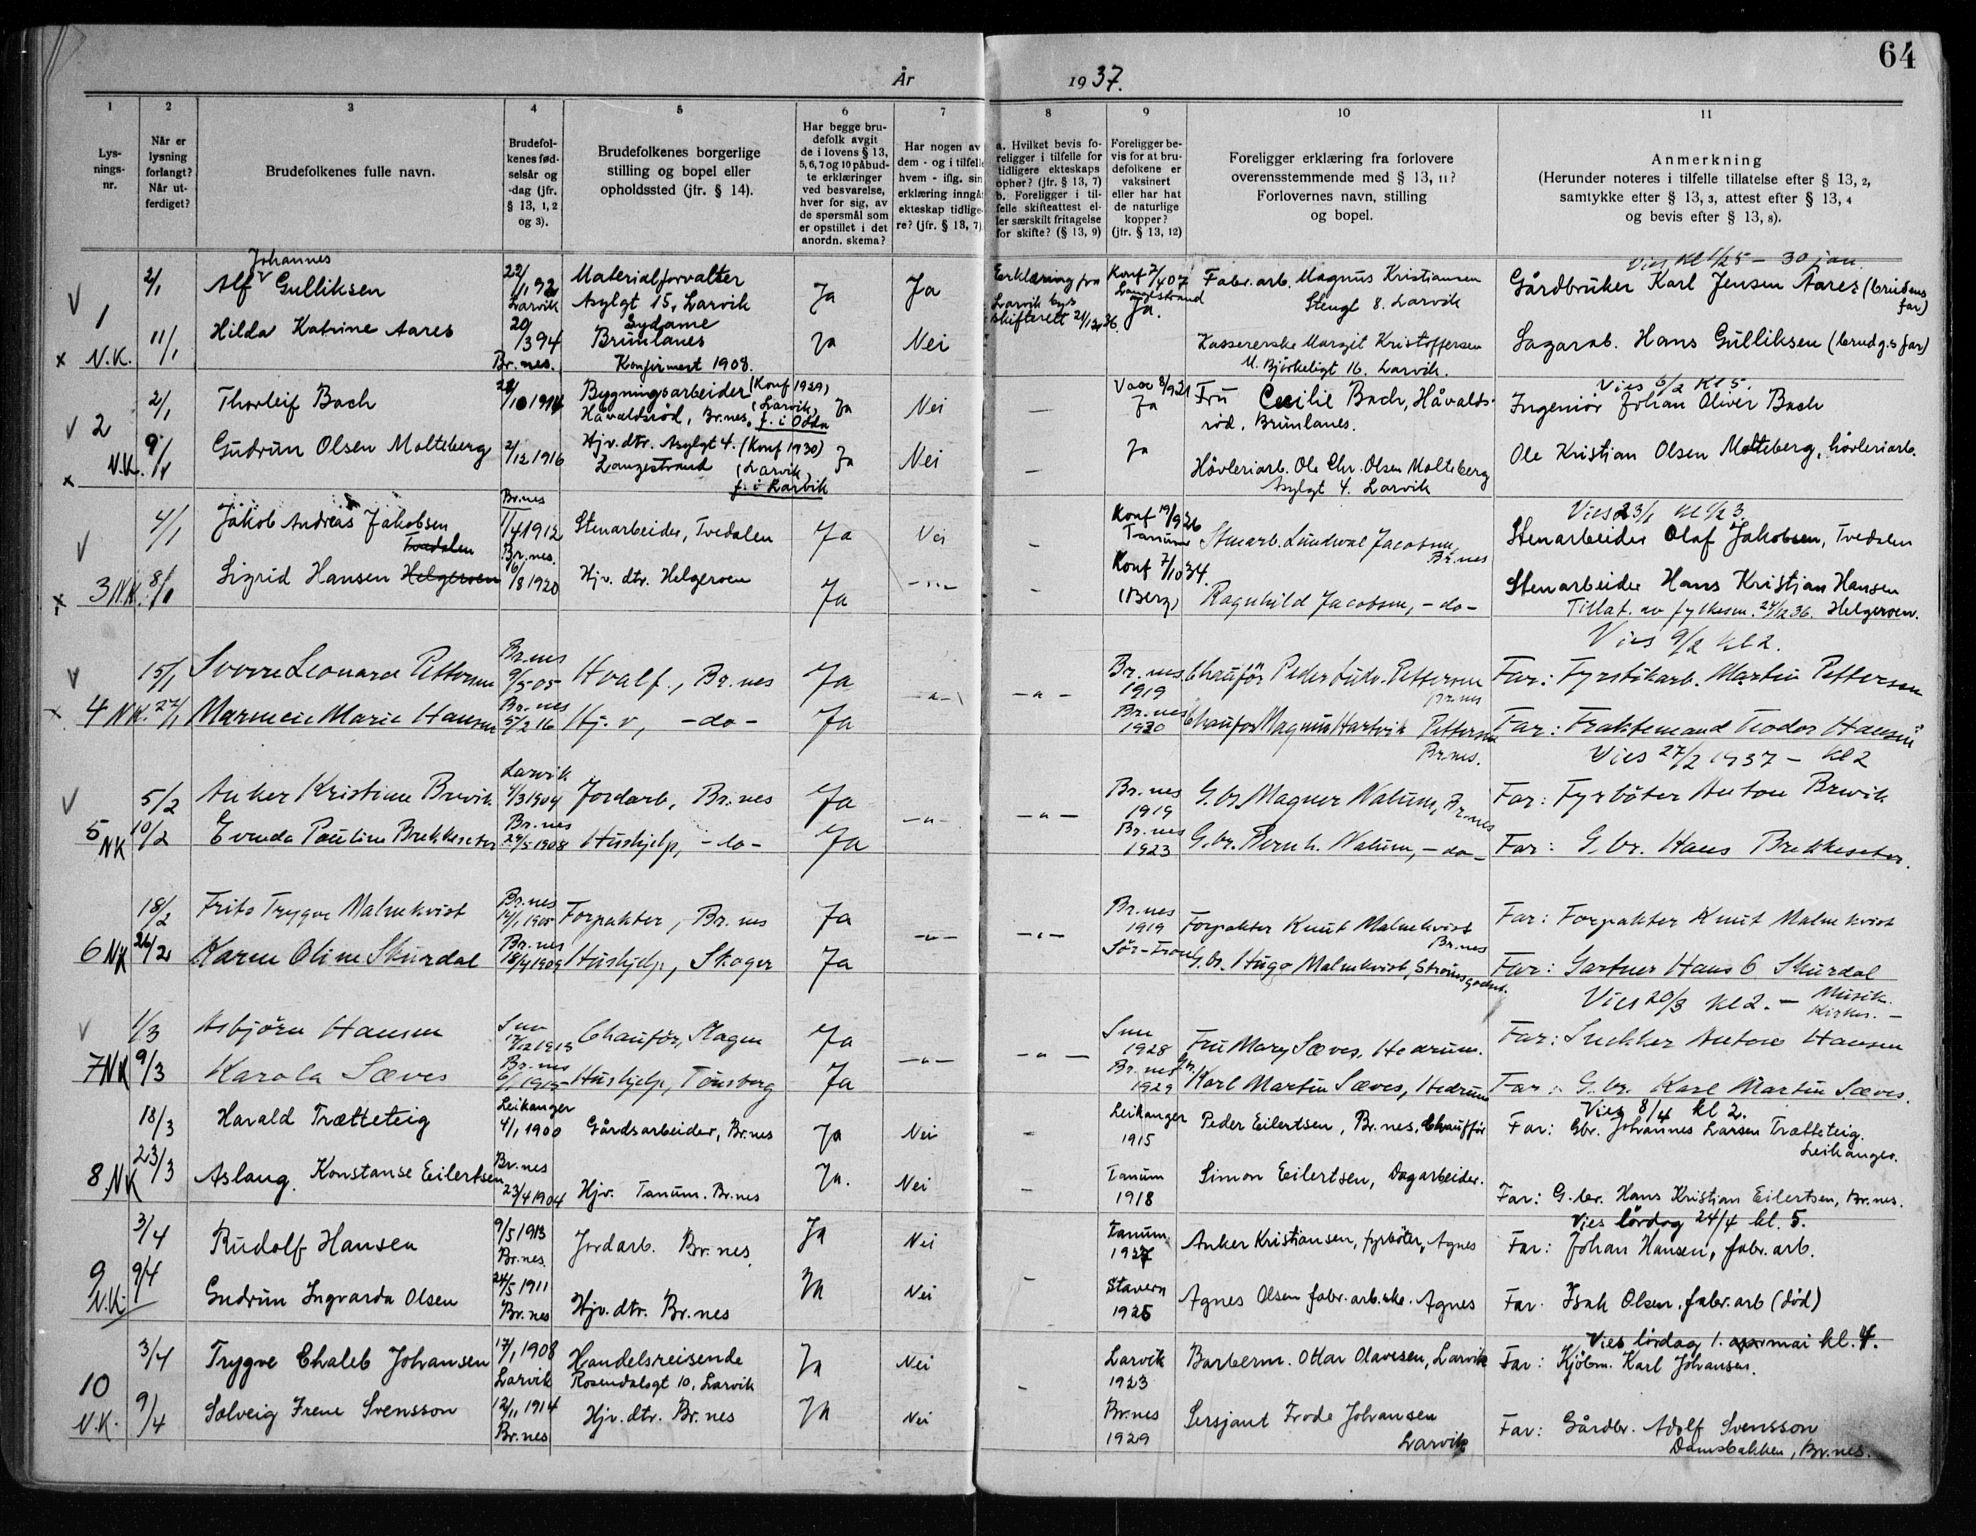 64
År 1937.
1 2 3 4 5 6 7 8 9 10 11
Lys-
nings-
nr.
Når er
lysning
forlangt?
Når ut-
ferdiget?
Brudefolkenes fulle navn.
Brudefol-
kenes fød-
selsår og
-dag (jfr.
§ 13, 1, 2
og 3).
Brudefolkenes borgerlige
stilling og bopel eller
opholdssted (jfr. § 14).
Har begge bru-
defolk avgit
de i lovens § 13,
5, 6, 7 og 10 påbud-
te erklæringer
ved besvarelse,
hver for sig, av
de spørsmål som
er opstillet i det
anordn. skema?
Har nogen av
dem - og i tilfelle
hvem - iflg. sin
erklæring inngå
ekteskap tidlige-
re? (jfr. § 13, 7)
a. Hvilket bevis fo-
religger i tilfelle for
tidligere ekteskaps
ophør? (jfr. § 13, 7)
b. Foreligger i til-
felle skifteattest el-
ler særskilt fritagelse
for skifte? (§ 13, 9)
Foreligger be-
vis for at bru-
defolkene er
vaksinert
eller har hat
de naturlige
kopper?
(jfr. § 13, 12)
Foreligger erklæring fra forlovere
overensstemmende med § 13, 11?
Forlovernes navn, stilling
og bopel.
Anmerkning
(Herunder noteres i tilfelle tillatelse efter § 13, 2,
samtykke efter § 13, 3, attest efter § 13, 4
og bevis efter § 13, 8).
Vies kl 1/25 - 30 jan.
1 2/1 Alf Johannes Gulliksen 22/1 92 Larvik Materialforvalter
Asylgt 15, Larvik Ja Ja Erklæring fra
Larvik bys
skifterett 21/12 36. Konf 7/407
Langestrand
Ja. Fabr. arb. Magnus Kristiansen
Stengt 8. Larvik Gårdbruker Karl Jensen Aares (brudens
far)
N.K. 11/1 Hilda Katrine Aares 20/3 94 Br.nes. Sydame
Brunlanes
Konfirmert 1908. Ja Nei Kassererske Margit Kristoffersen
U. Bjørkeligt 16. Larvik. Sagarb. Hans Gulliksen (brudg.s far)
Vies 6/2 kl 5.
2 2/1 Thorleif Bach 22/10 1914 Bygningsarbeider (Konf 1929)
Håvaldsrød, Br.nes, (Larvik)
f. i Odda Ja Nei — Vacc 8/921
Ja Fru Cecilie Bach, Håvalds-
rød, Brunlanes. Ingeniør Johan Oliver Bach
N.K. 9/1 Gudrun Olsen Molteberg 2/12 1916 Hjv. dtr. Asylgt 4. (Konf 1930)
Langestrand (Larvik
f. i Larvik Ja Nei — Ja Høvleriarb. Ole Chr. Olsen Molteberg
Asylgt 4. Larvik Ole Kristian Olsen Molteberg, høvleriarb.
Vies 23/1 kl 1/2 3.
4/1 Jakob Andreas Jakobsen
Tvedalen Br.nes
1/4 1912 Stenarbeider, Tvedalen Ja Nei - Konf 19/926
Tanum Stenarb. Lundwal Jacobsen,
Br.nes Stenarbeider Olaf Jakobsen, Tvedalen
3 NK. 8/1 Sigrid Hansen Helgeroen Br.nes.
6/8 1920 Hjv. dtr. Helgeroen Ja -"- - Konf 7/1034.
(Berg) Ragnhild Jacobsen, -do- Stenarbeider Hans Kristian Hansen
Tillat. av fylkesm. 24/12 36. Helgeroen.
Vies 9/2 kl 2.
15/1 Sverre Leonard Pettersen Br.nes
9/5 05 Hvalf., Br.nes Ja -"- -"- Br.nes
1919 Chauför Peder Ludv. Pettersen
Br.nes Far: Fyrstikarb. Martin Pettersen
4 NK. 27/1 Marmein Marie Hansen Br.nes
5/2 16 Hj. v, -do- Ja Br.nes
1930 Chaufor Magnus Hartvik Pettersen
Br.nes. Far: Fraktemand Teodor Hansen
Vies 27/2 1937 - kl 2
5/2 Anker Kristian Brevik Larvik
4/3 1904 Jordarb, Br.nes Ja -"- -"- Br.nes
1919 G.br Magner Nalum, Br.nes Far: Fyrbøter Anton Brevik
5 NK 10/2 Evenda Pauline Brekkeseter Br.nes
29/5 1908 Hushjelp, -do- Ja Br.nes
1923 G.br. Bernh. Nalum, -do- Far: G.br. Hans Brekkeseter.
18/2 Frits Trygve Malmkvist Br.nes
14/1 1905 Forpakter, Br.nes Ja -"- -"- Br.nes
1919 Forpakter Knut Malmkvist
Br.nes Far: Forpakter Knut Malmkvist
6 NK 26/2 Karen Oline Skurdal Br.nes
18/4 1909 Hushjelp, Skoger Ja Sør-Fron G.br. Hugo Malmkvist, Strømsgodset. Far: Gartner Hans C. Skurdal
Vies 20/3 kl 2. - Musik.
Kirken. -
1/3 Asbjørn Hansen Sem
17/12 1913 Chauför, Slagen Ja -"- -"- Sem
1928 Fru Mary Sæves, Hedrum. Far: Snekker Anton Hansen
7 NK 9/3 Karola Sæves Br.nes
6/1 1915 Hushjelp, Tønsberg Ja Br.nes
1929 Gbr. Karl Martin Sæves, Hedrum Far: G.br. Karl Martin Sæves.
Vies 8/4 kl 2.
18/3 Harald Trætteteig Leikanger
4/1 1900 Gårdsarbeider, Br.nes Ja Nei Leikanger
1915 Peder Eilertsen, Br.nes, Chaufför Far: Gbr. Johannes Larsen Trætteteig.
Leikanger.
8 NK 23/3 Aslaug Konstanse Eilertsen Br.nes
23/4 1904 Hjv. Tanum. Br.nes Ja. Nei - Tanum
1918 Simon Eilertsen, Dagarbeider. Far: G.br. Hans Kristian Eilertsen, Br.nes.
Vies lördag 24/4 kl. 5.
3/4 Rudolf Hansen 9/5 1913
Br.nes. Jordarb. Br.nes. Ja Nei Tanum
1927 Anker Kristiansen, fyrbøter, Agnes Far: Johan Hansen, fabr. arb.
9 N.K. 9/4 Gudrun Ingvarda Olsen 24/5 1911
Br.nes Hjv. dtr. Br.nes Ja Nei - Stavern
1925 Agnes Olsen fabr. arb.ske. Agnes Far. Isak Olsen, fabr. arb (død)
Vies lördag 1. mai kl. 4.
3/4 Trygve Chaleb Johansen 17/1 1908
Larvik Handelsreisende
Rosendalsgt 10, Larvik Ja Nei Larvik
1923 Barberm. Ottar Olavesen, Larvik Far: Kjøbm. Karl Johansen.
10 N.K. 9/4 Solveig Irene Svensson 12/11 1914
Br.nes Hjv. dtr. Br.nes Ja Nei - Br.nes
1929 Sersjant Frode Johansen
Larvik Far: Gårdbr. Adolf Svensson
Damsbakken, Br.nes.